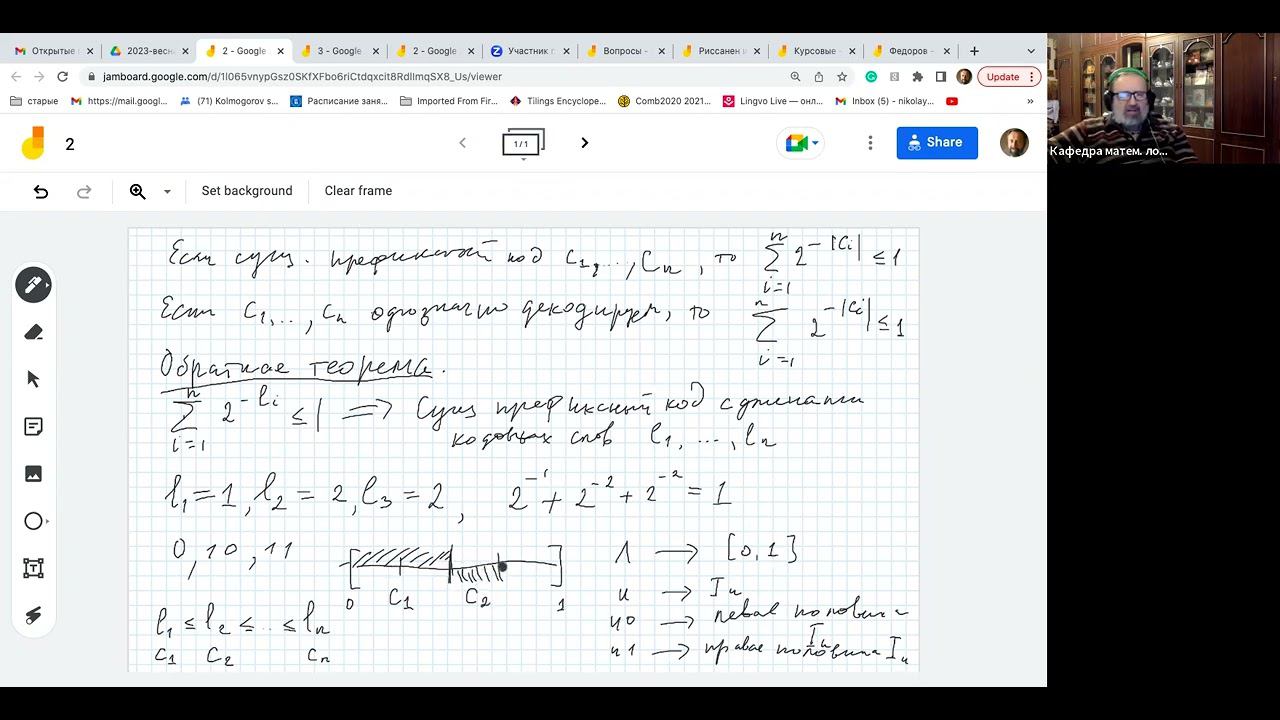 Открытые
2023-весн
2 - Google
3 - Google
2 - Google
Участник г
Вопросы -
Риссанен и
Курсовые -
Федоров -
jamboard.google.com/d/1l065vnypGsz0SKfXFbo6riCtdqxcit8RdllmqSX8_Us/viewer
Update
старые
https://mail.googl...
(71) Kolmogorov s...
Расписание заня...
Imported From Fir...
Tilings Encyclope...
Comb2020 2021...
Lingvo Live — онл...
Inbox (5) - nikolay...
»
Кафедра матем. ло...
2
1/1
Share
Set background
Clear frame
Если сущ. префиксный код c₁,...,cₙ, то ∑ᵢ₌₁ⁿ 2^{-|cᵢ|} ≤ 1
Если c₁,..,cₙ однозначно декодируем, то ∑ᵢ₌₁ⁿ 2^{-|cᵢ|} ≤ 1
Обратная теорема.
∑ᵢ₌₁ⁿ 2^{-lᵢ} ≤ 1 ⟹ Сущ префиксный код с длинами
кодовых слов l₁, ..., lₙ
l₁ = 1, l₂ = 2, l₃ = 2, 2⁻¹ + 2⁻² + 2⁻² = 1
0, 10, 11
0 c₁ c₂ 1
Λ → [0,1]
u → Iᵤ
u0 → левая половина Iᵤ
u1 → правая половина Iᵤ
l₁ ≤ l₂ ≤ ... ≤ lₙ
c₁ c₂ cₙ